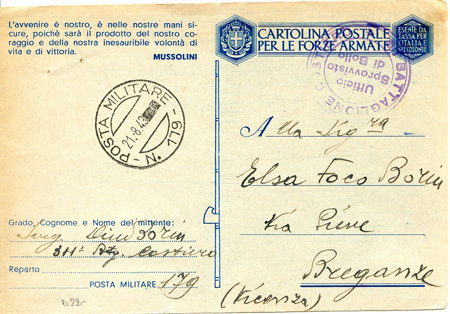 L'avvenire è nostro, è nelle nostre mani si-
cure, poichè sarà il prodotto del nostro co-
raggio e della nostra inesauribile volontà di
vita e di vittoria.
MUSSOLINI
CARTOLINA POSTALE
PER LE FORZE ARMATE
ESENTE DA
TASSA PER
L'ITALIA E
COLONIE
BATTAGLIONE
Ufficio
Sprovvisto
di Bollo
POSTA MILITARE
21.8.43
N. 179
Alla Sig.ra
Elsa Foco Borin
Via Pieve
Breganze
(Vicenza)
Grado, Cognome e Nome del mittente:
Borin
Btg. Costiero
Reparto
POSTA MILITARE 179